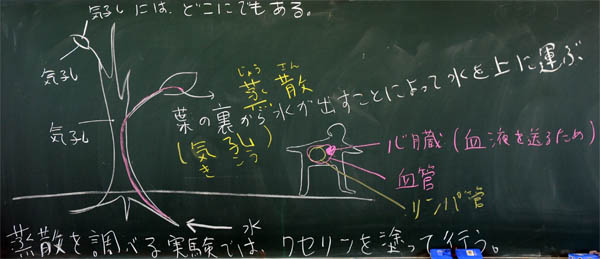 気孔には、どこにでもある。
気孔
気孔
じょう さん
蒸散
葉の裏から水が出すことによって水を上に運ぶ
(気孔)
き こう
心臓(血液を送るため)
血管
リンパ管
水
蒸散を調べる実験では、ワセリンを塗って行う。